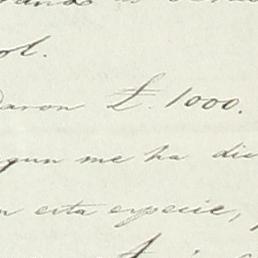 ol.
daron £. 1000.
gun me ha di
n esta especie,